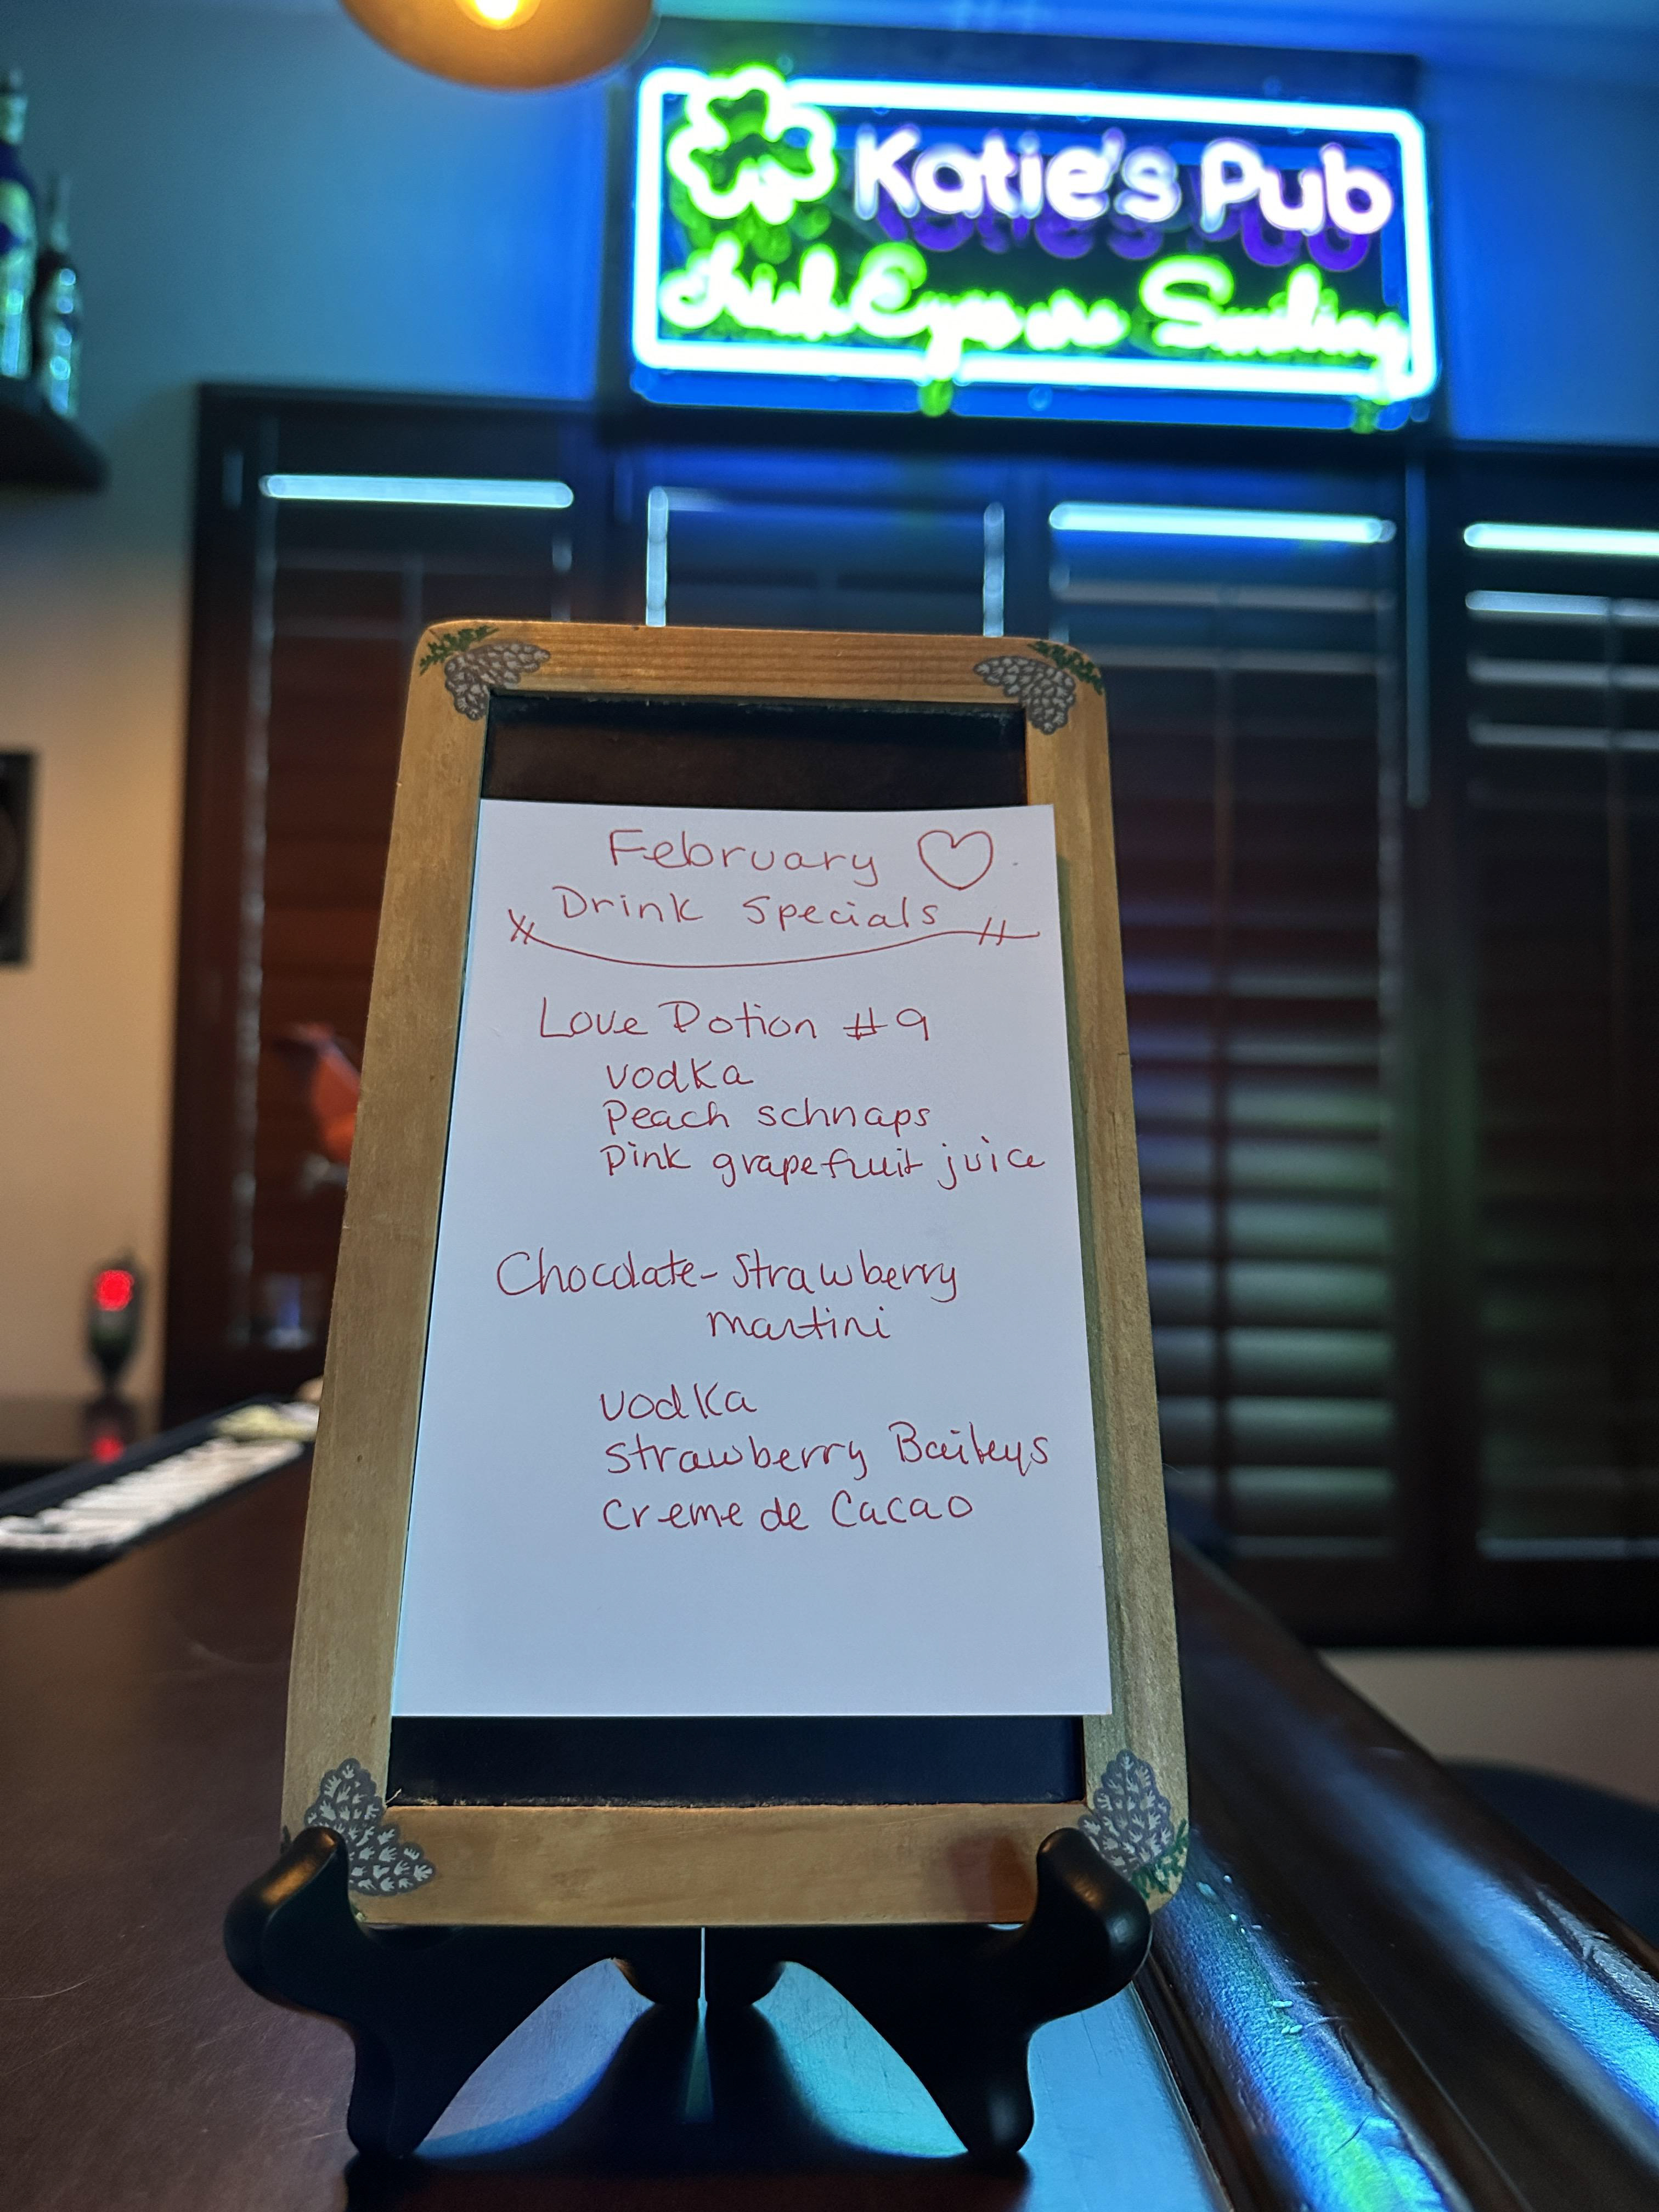 Katie's Pub
Irish Eyes are Smiling
February
Drink Specials
Love Potion #9
vodka
Peach schnaps
Pink grapefruit juice
Chocolate-Strawberry
martini
vodka
Strawberry Baileys
Creme de Cacao